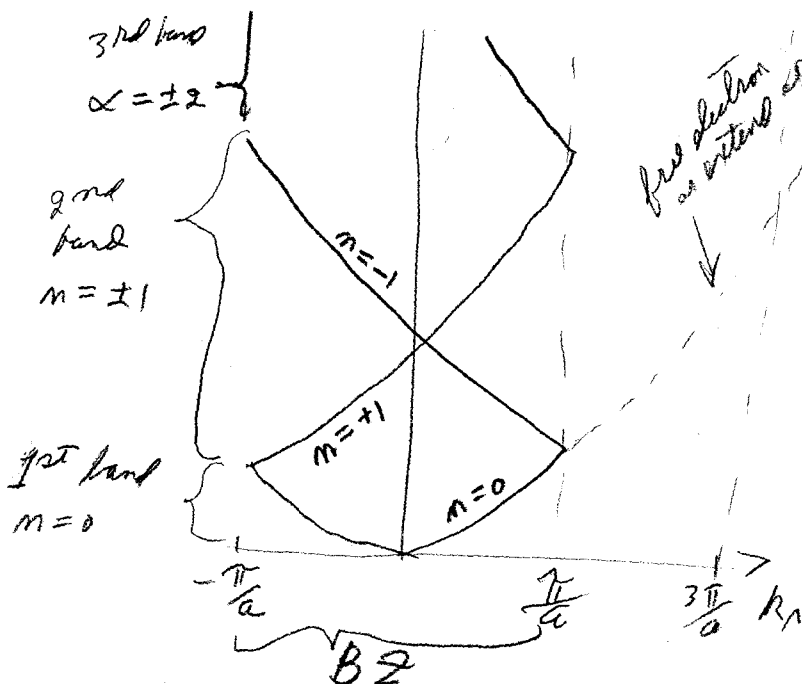 3rd band
α = ±2
2nd
band
n = ±1
1st band
n = 0
n=-1
n=+1
n=0
free electron
as extend
-π/a
π/a
3π/a
k
BZ